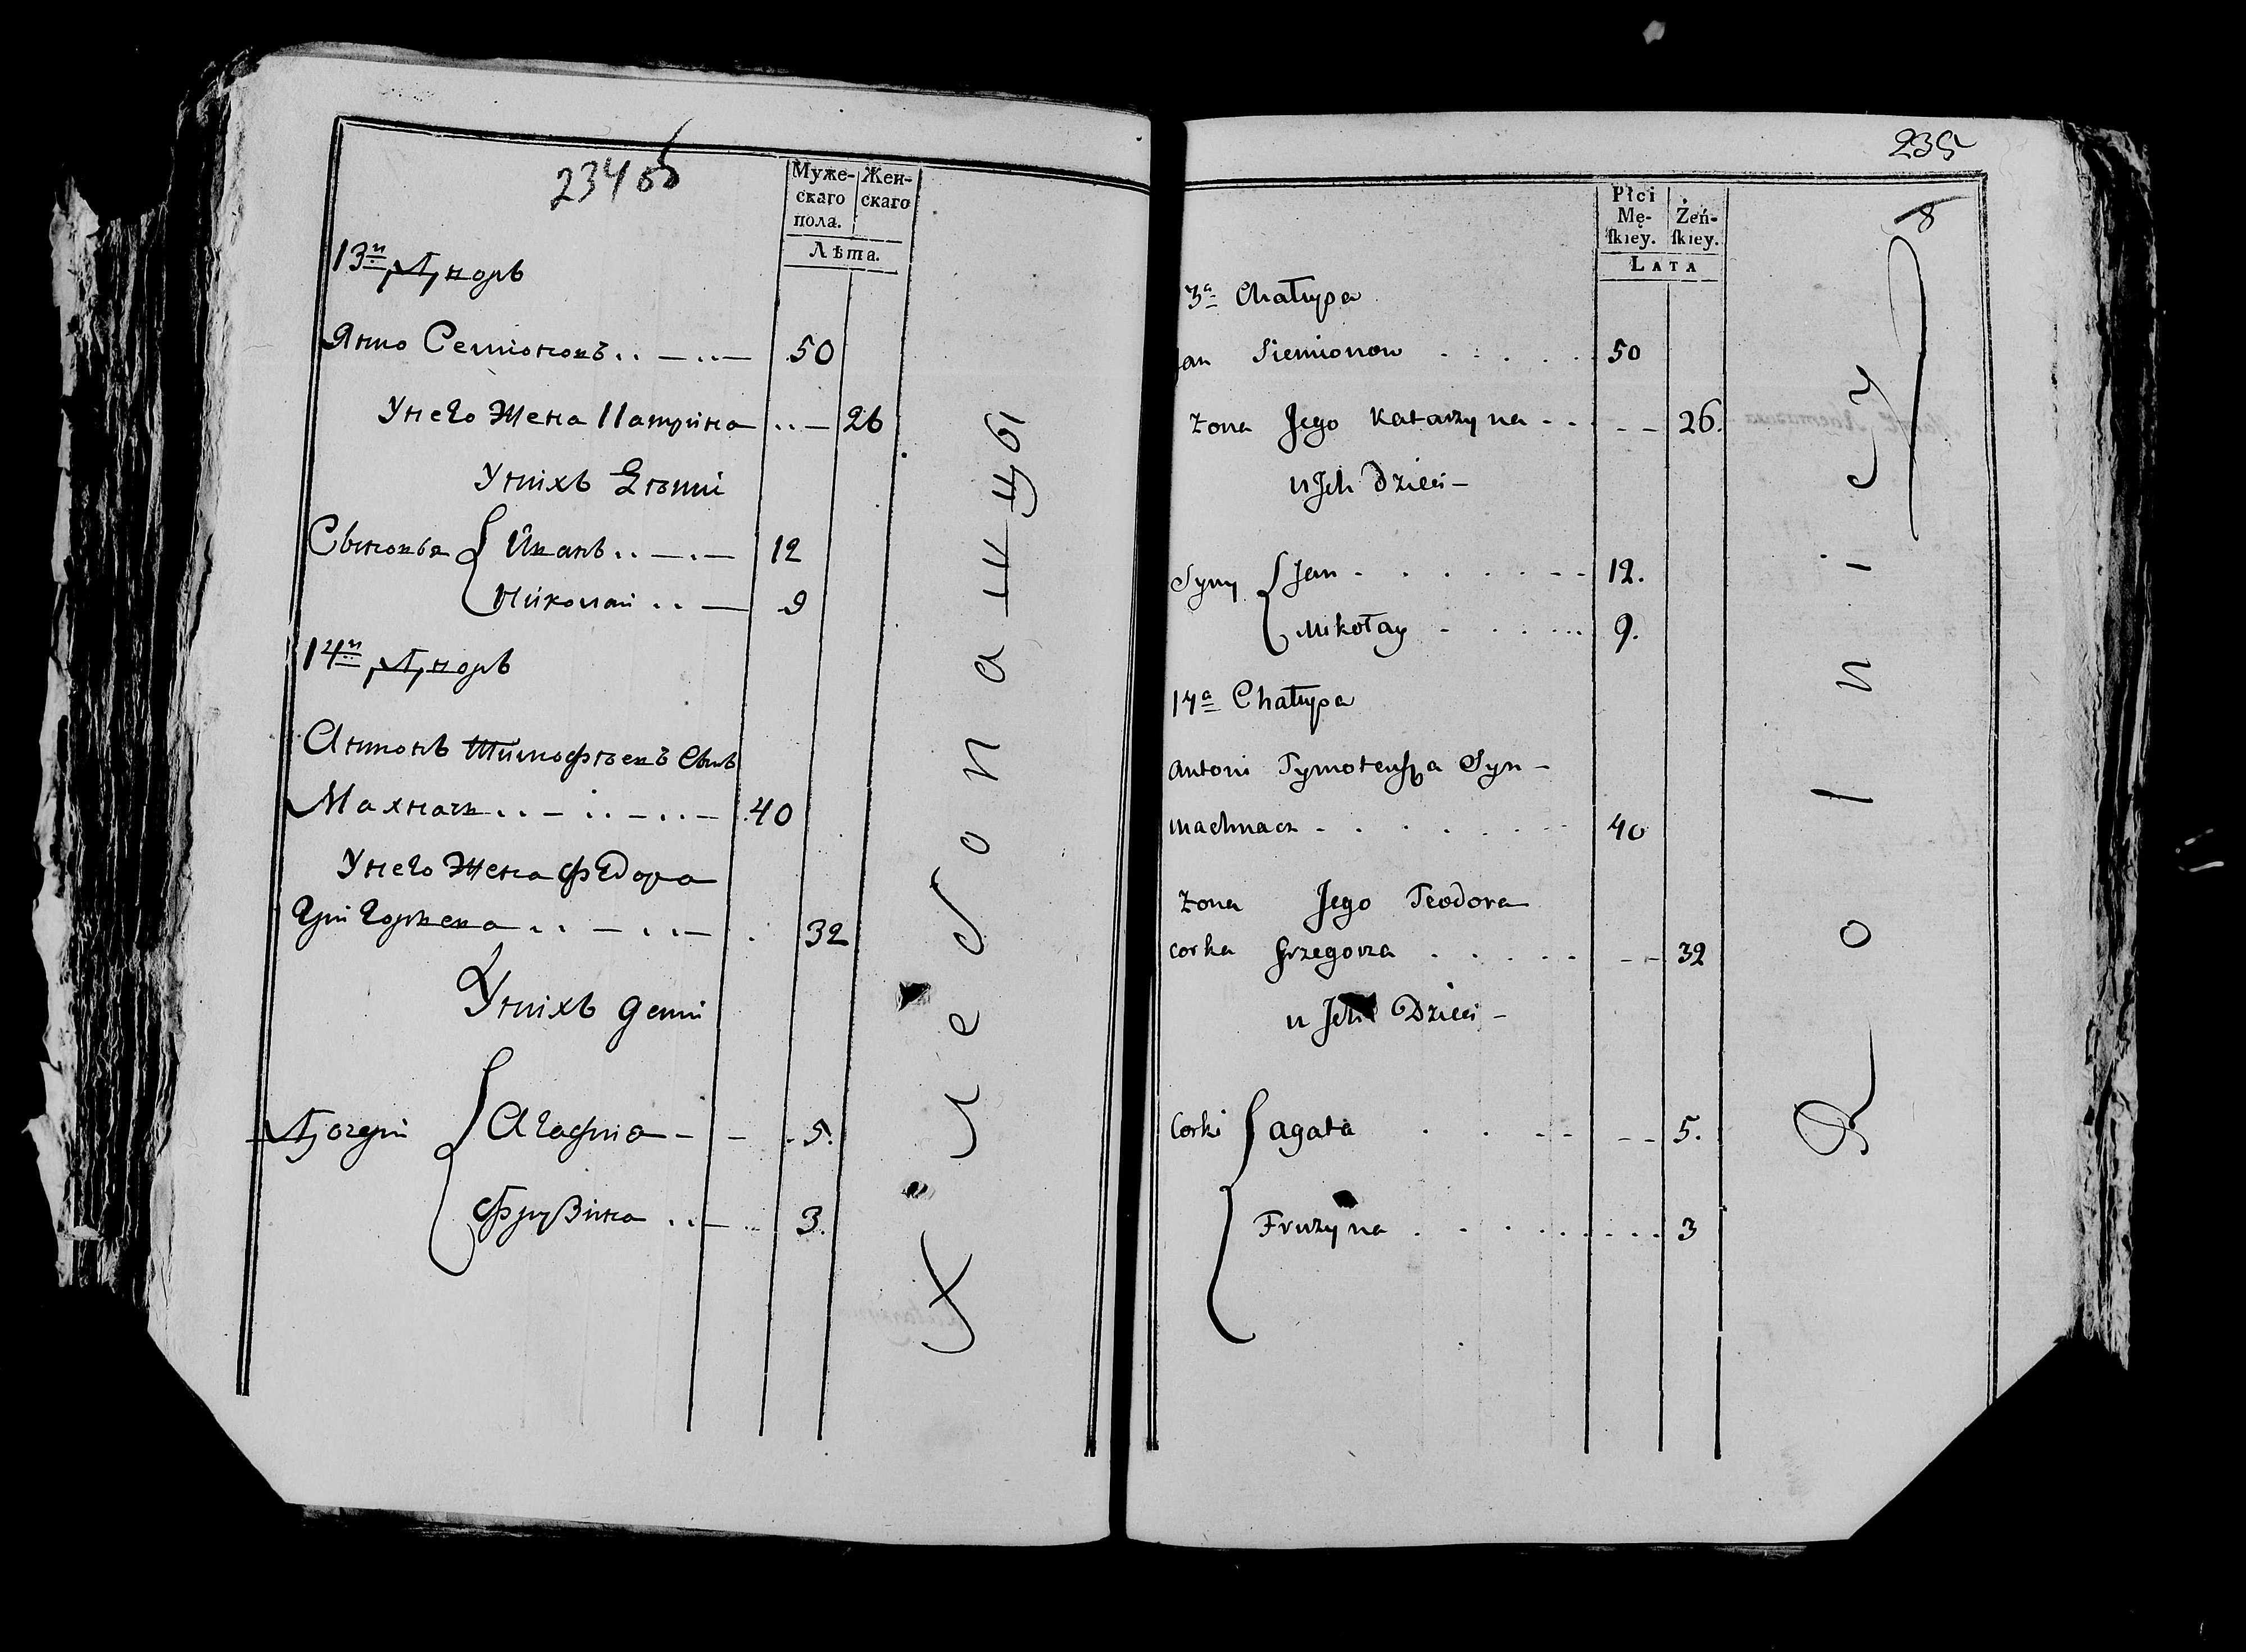 234 об
Муже-
скаго
пола.
Жен-
скаго
Лѣта.
13й Дворъ
Янко Семіоновъ 50
У него жена Катрина 26
У нихъ дѣти
Сыновья { Иванъ 12
Николай 9
14й Дворъ
Антонъ Тимофѣевъ Сынъ
Махначь 40
У него жена Федора
Григорьева 32
У нихъ дети
Дочери { Агафия 5.
Фрузина 3.
235
8
Płci
Mę-
ſkiey.
Żeń-
ſkiey.
LATA
3a Chałupa
Jan Siemionow 50
żona Jego Katarzyna 26.
u Jch Dzieci
Syny { Jan 12.
Mikołay 9.
14a Chałupa
Antoni Tymoteusza Syn
Machnacz 40
żona Jego Teodora
corka Grzegorza 32
u Jch Dzieci
Corki { Agata 5.
Fruzyna 3
Rolnicy